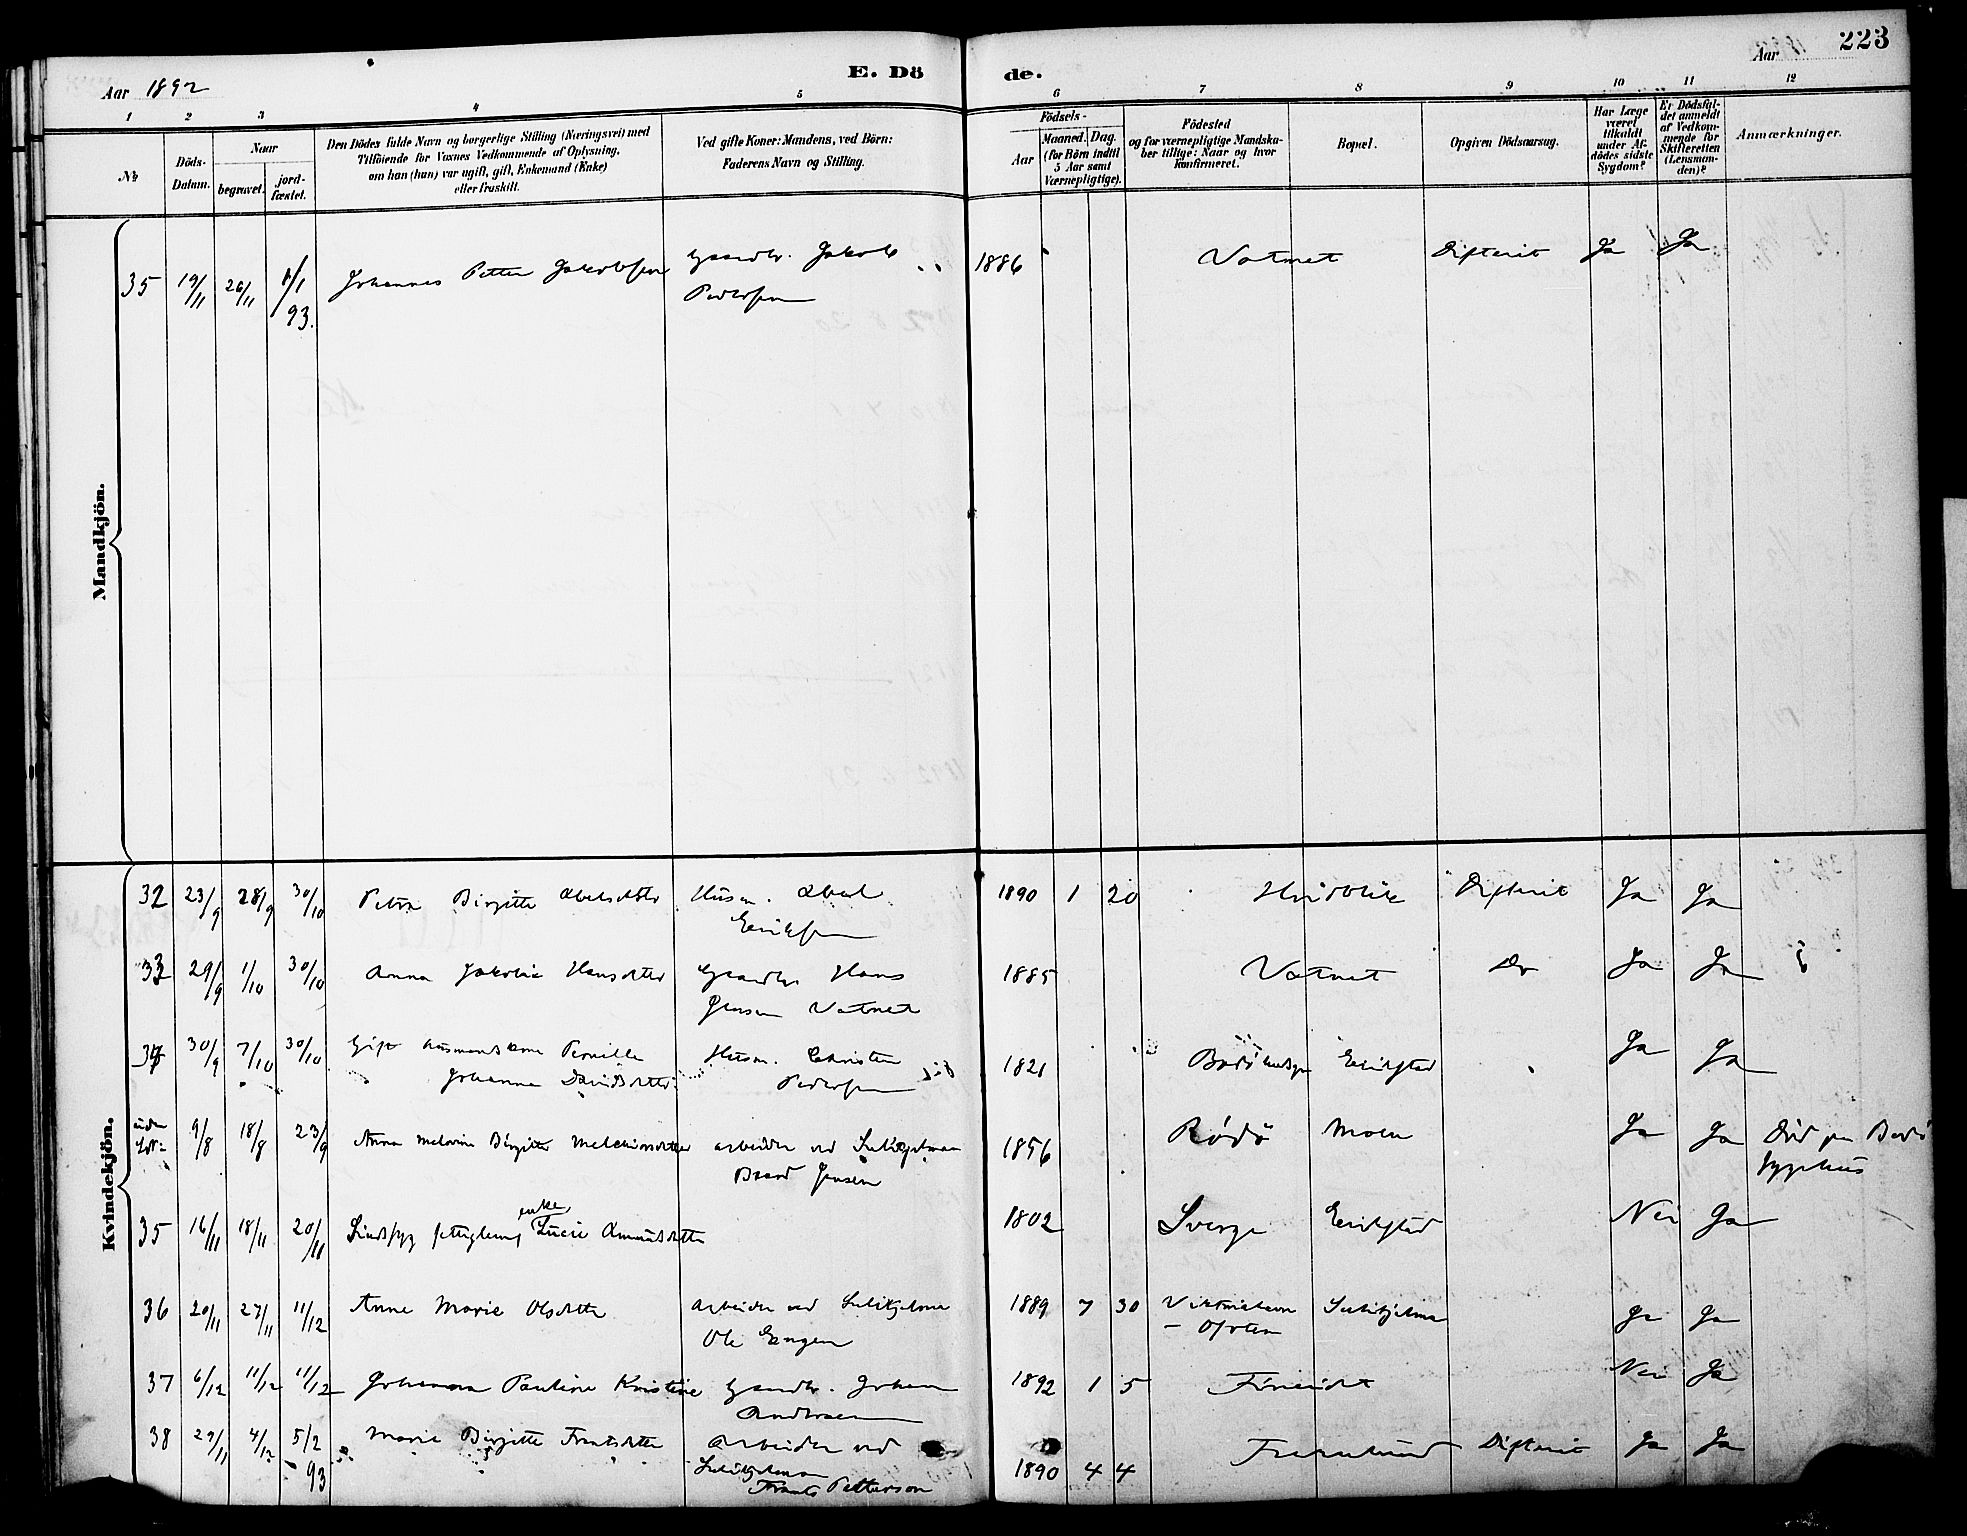 Aar 1892
E. Dö
de.
Aar 18
223
1 2 3 4 5 6 7 8 9 10 11 12
№
Döds-Datum.
Naar
begravet.
jord-fæstet.
Den Dödes fulde Navn og borgerlige Stilling (Næringsvei) med
Tilföiende for Voxnes Vedkommende af Oplysning,
om han (hun) var ugift, gift, Enkemand (Enke)
eller fraskilt.
Ved gifte Koner: Mandens, ved Börn:
Faderens Navn og Stilling.
Födsels-
Aar
Maaned. Dag.
(for Börn indtil
5 Aar samt
Værnepligtige).
Födested
og for værnepligtige Mandska-
ber tillige: Naar og hvor
konfirmeret.
Bopæl.
Opgiven Dödsaarsag.
Har Læge
været
tilkaldt
under Af-
dödes sidste
Sygdom?
Er Dödsfal-
det anmeldt
af Vedkom-
mende for
Skifteretten
(Lensman-
den)?
Anmærkninger.
Mandkjön.
35 19/11 26/11 1/1 93. Johannes Petter Jakobsen Gaardbr. Jakob 1886 Vatnet Difterit Ja Ja
Pedersen
Kvindekjön.
32 23/9 28/9 30/10 Petra Birgitte Abelsdtter Husm. Abel 1890 1 20 Hvidblik Difterit Ja Ja
Eriksen
33 29/9 1/10 30/10 Anna Jakobie Hansdtter Gaardbr. Hans 1885 Vatnet Do Ja Ja
Jensen Vatnet
34 30/9 7/10 30/10 Gift Husmandskone Pernille Husm. Christen 1821 Bodö Erikstad Ja Ja
Johanna Davidsdtter Pedersen
uden
9/8 18/8 23/9 Anna Birgitte Melchiorsdtter arbeider ved Sulitjelma 1856 Rödö Moen Ja Ja Död paa Bodö
Baard Jensen sygehus
enke
35 16/11 18/11 20/11 Sindssyg fattiglem Lucie Amundsdtter 1802 Sverge Erikstad Nei Ja
36 20/11 27/11 11/12 Anne Marie Olsdtter Arbeider ved Sulitjelma 1889 7 30 Victoriahavn Sulitjelma Ja Ja
Ole Engen - Ofoten
37 6/12 11/12 11/12 Johanna Pauline Kristine Gaardbr. Johan 1892 1 5 Finneidet Nei Ja
Andersen
38 29/11 4/12 5/2 93 Marie Birgitte Frantsdtter Arbeider ved Furulund Difterit Ja Ja
Sulitjelma 1890 4 4
Frants Petterson